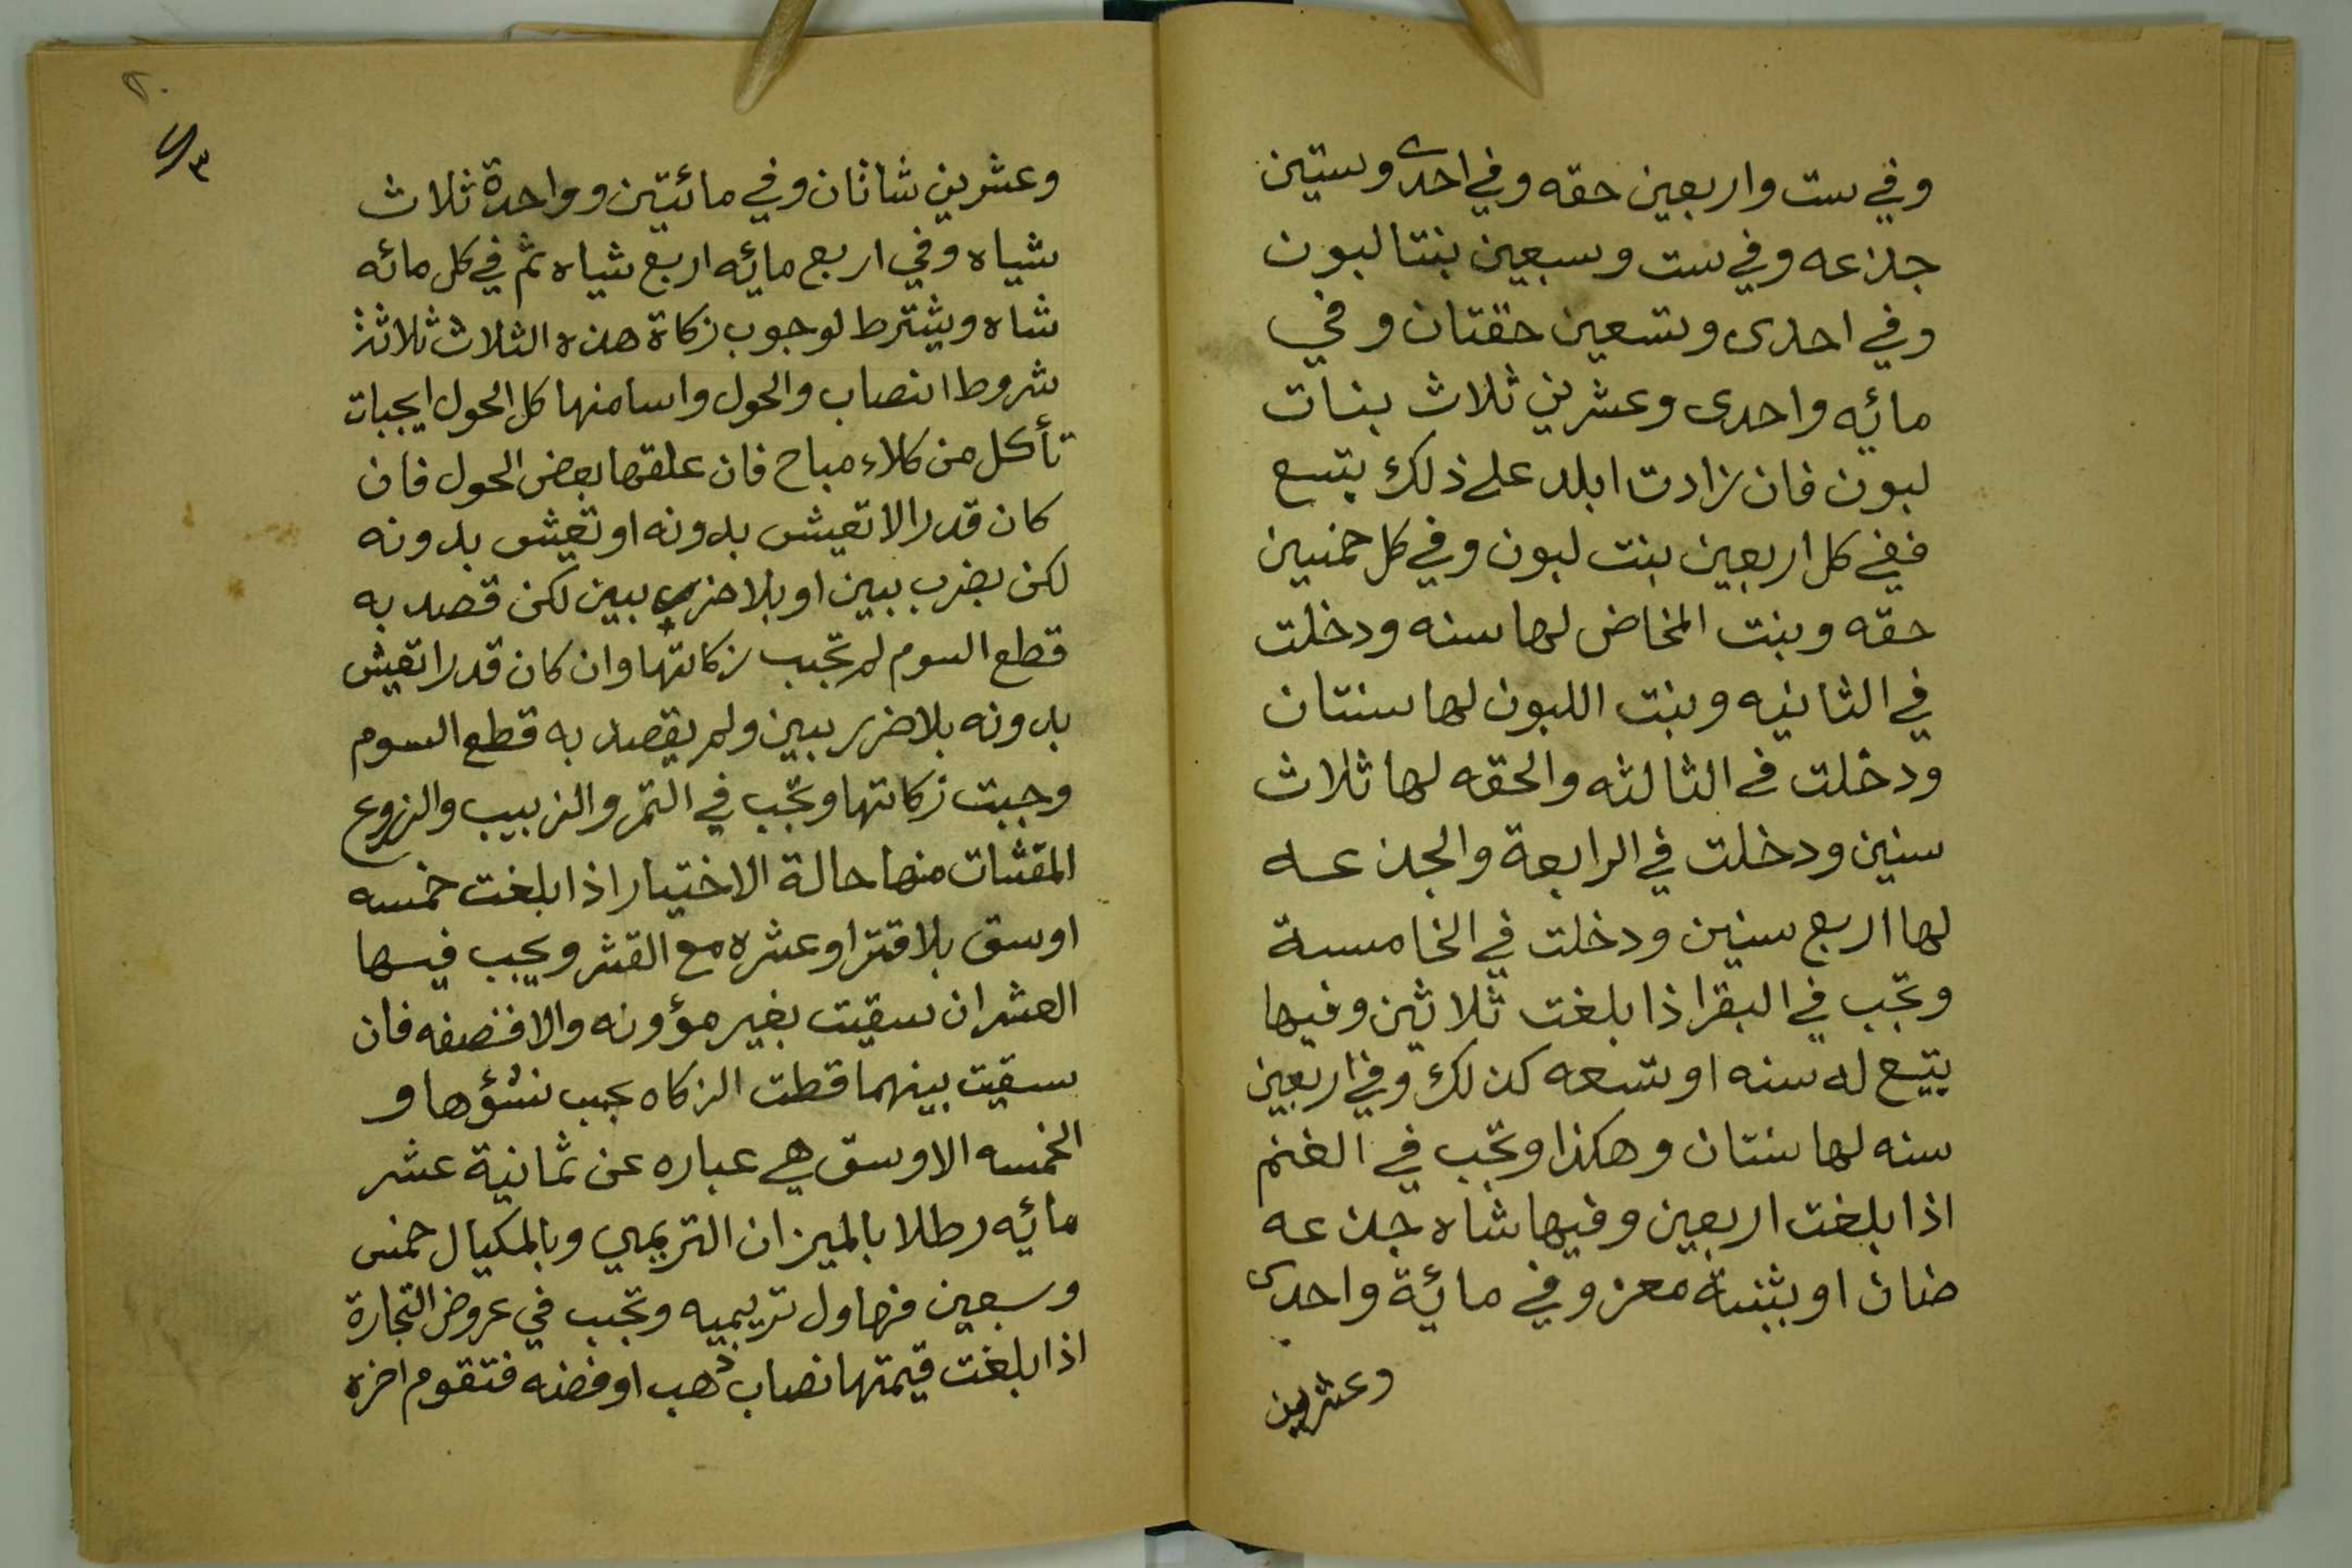 وفي ست واربعين حقه وفي احدى وستين
جذعه وفي ست وسبعين بنتا لبون
وفي احدى وتسعين حقتان وفي
مائيه واحدى وعشرين ثلاث بنات
لبون فان زادت ابله على ذلك بتسع
ففي كل اربعين بنت لبون وفي كل خمسين
حقه وبنت المخاض لها سنه ودخلت
في الثانيه وبنت اللبون لها سنتان
ودخلت في الثالثه والحقه لها ثلاث
سنين ودخلت في الرابعة والجذعه
لها اربع سنين ودخلت في الخامسة
وتجب في البقر اذا بلغت ثلاثين وفيها
بتيع له سنه او تسعه كذلك وفي اربعين
سنه لها سنتان وهكذا وتجب في الغنم
اذا بلغت اربعين وفيها شاه جذعه
ضنان او بثنية معز وفي مائية واحدى
وعشرين
٢٠
٣
وعشرين شاتان وفي مائتين وواحدة ثلاث
شياه وفي اربع مائه اربع شياه ثم في كل مائه
شاه ويشترط لوجوب زكاة هذه الثلاث ثلاثة
شروط النصاب والحول واسامنها كل الحول ايجبات
تأكل من كلاء مباح فان علقها بعض الحول فان
كان قدرا لا تعيش بدونه او تعيش بدونه
لكن بضرب ببين او بلا ضرر ببين لكن قصد به
قطع السوم لم تجب زكاتها وان كان قدرا تعيش
بدونه بلا ضرر ببين ولم يقصد به قطع السوم
وجبت زكاتها وتجب في التمر والزبيب والزروع
المقتات منها حالة الاختيار اذا بلغت خمسه
اوسق بلا قتر او عشره مع القشر ويجب فيها
العشر ان سقيت بغير مؤونه والا فنصفه فان
سقيت بينهما قطت الزكاه بجب نشؤها و
الخمسه الاوسق هي عباره عن ثمانية عشر
مائيه رطلا بالميزان التريمي وبالمكيال خمس
وسبعين قهاول تريميه وتجب في عروض التجارة
اذا بلغت قيمتها نصاب ذهب او فضه فتقوم اخره